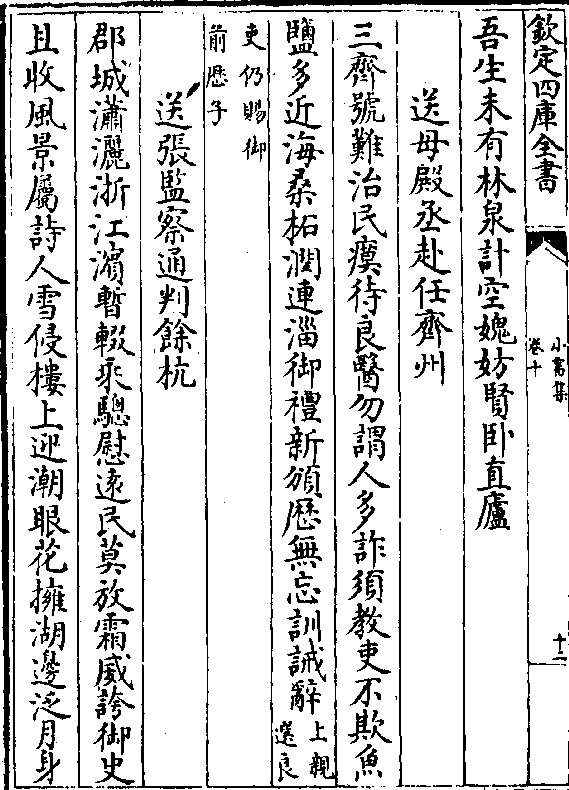 欽定四庫全書
小畜集
卷十
十二
吾生未有林泉計空媿妨賢卧直廬
送母殿丞赴任齊州
三齊號難治民瘼待良醫勿謂人多詐須教吏不欺魚
鹽多近海桑柘潤連淄御禮新頒歴無忘訓誡辭上親
選良
吏仍賜御
前歴子
送張監察通判餘杭
郡城瀟灑浙江濱暫輟乘驄慰逺民莫放霜威誇御史
且收風景屬詩人雪侵樓上迎潮眼花擁湖邊泛月身